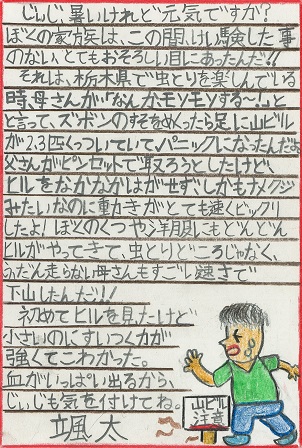 じぃじ暑いけれど元気ですか?
ぼくの家族は、この間、けい験した事
のないとてもおそろしい目にあったんだ!!
それは、栃木県で虫とりを楽しんでいる
時、母さんが「なんかモソモソする〜。」と
言って、ズボンのすそをめくったら足に山ビル
が2、3匹くっついていて、パニックになったんだよ。
父さんがピンセットで取ろうとしたけど、
ヒルをなかなかはがせずしかもナメクジ
みたいなのに動きがとても速くビックリ
したよ!ぼくのくつや洋服にもどんどん
ヒルがやってきて、虫とりどころじゃなく、
ふだん走らない母さんもすごい速さで
下山したんだ!!!
初めてヒルを見たけど
小さいのにすいつく力が
強くてこわかった。
血がいっぱい出るから、
じぃじも気を付けてね。
颯大
山ビル
注意